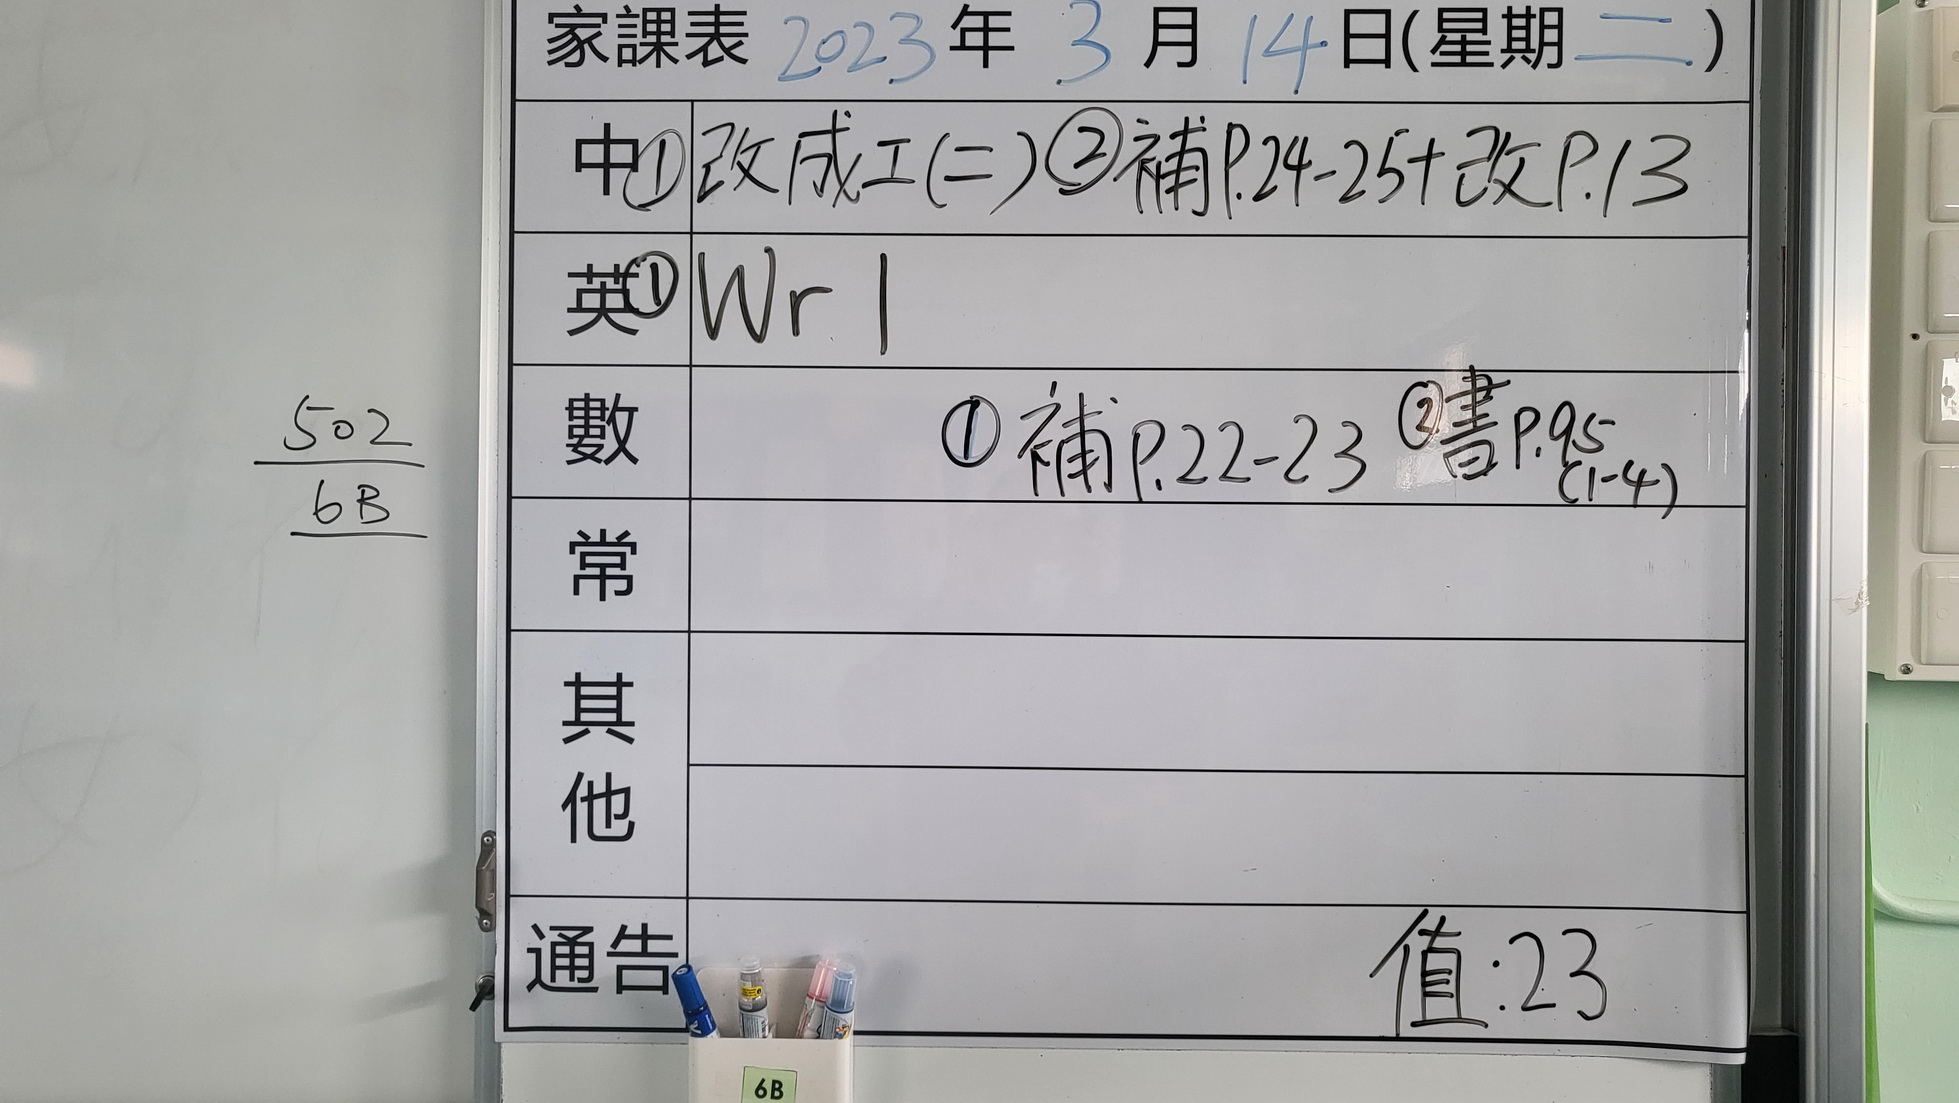 家課表 2023年 3月 14日(星期二)
中 ①改成工(二) ②補P.24-25+改P.13
英 ①Wr 1
數 ①補P.22-23 ②書P.95
(1-4)
502
6B
常
其他
通告 值:23
6B